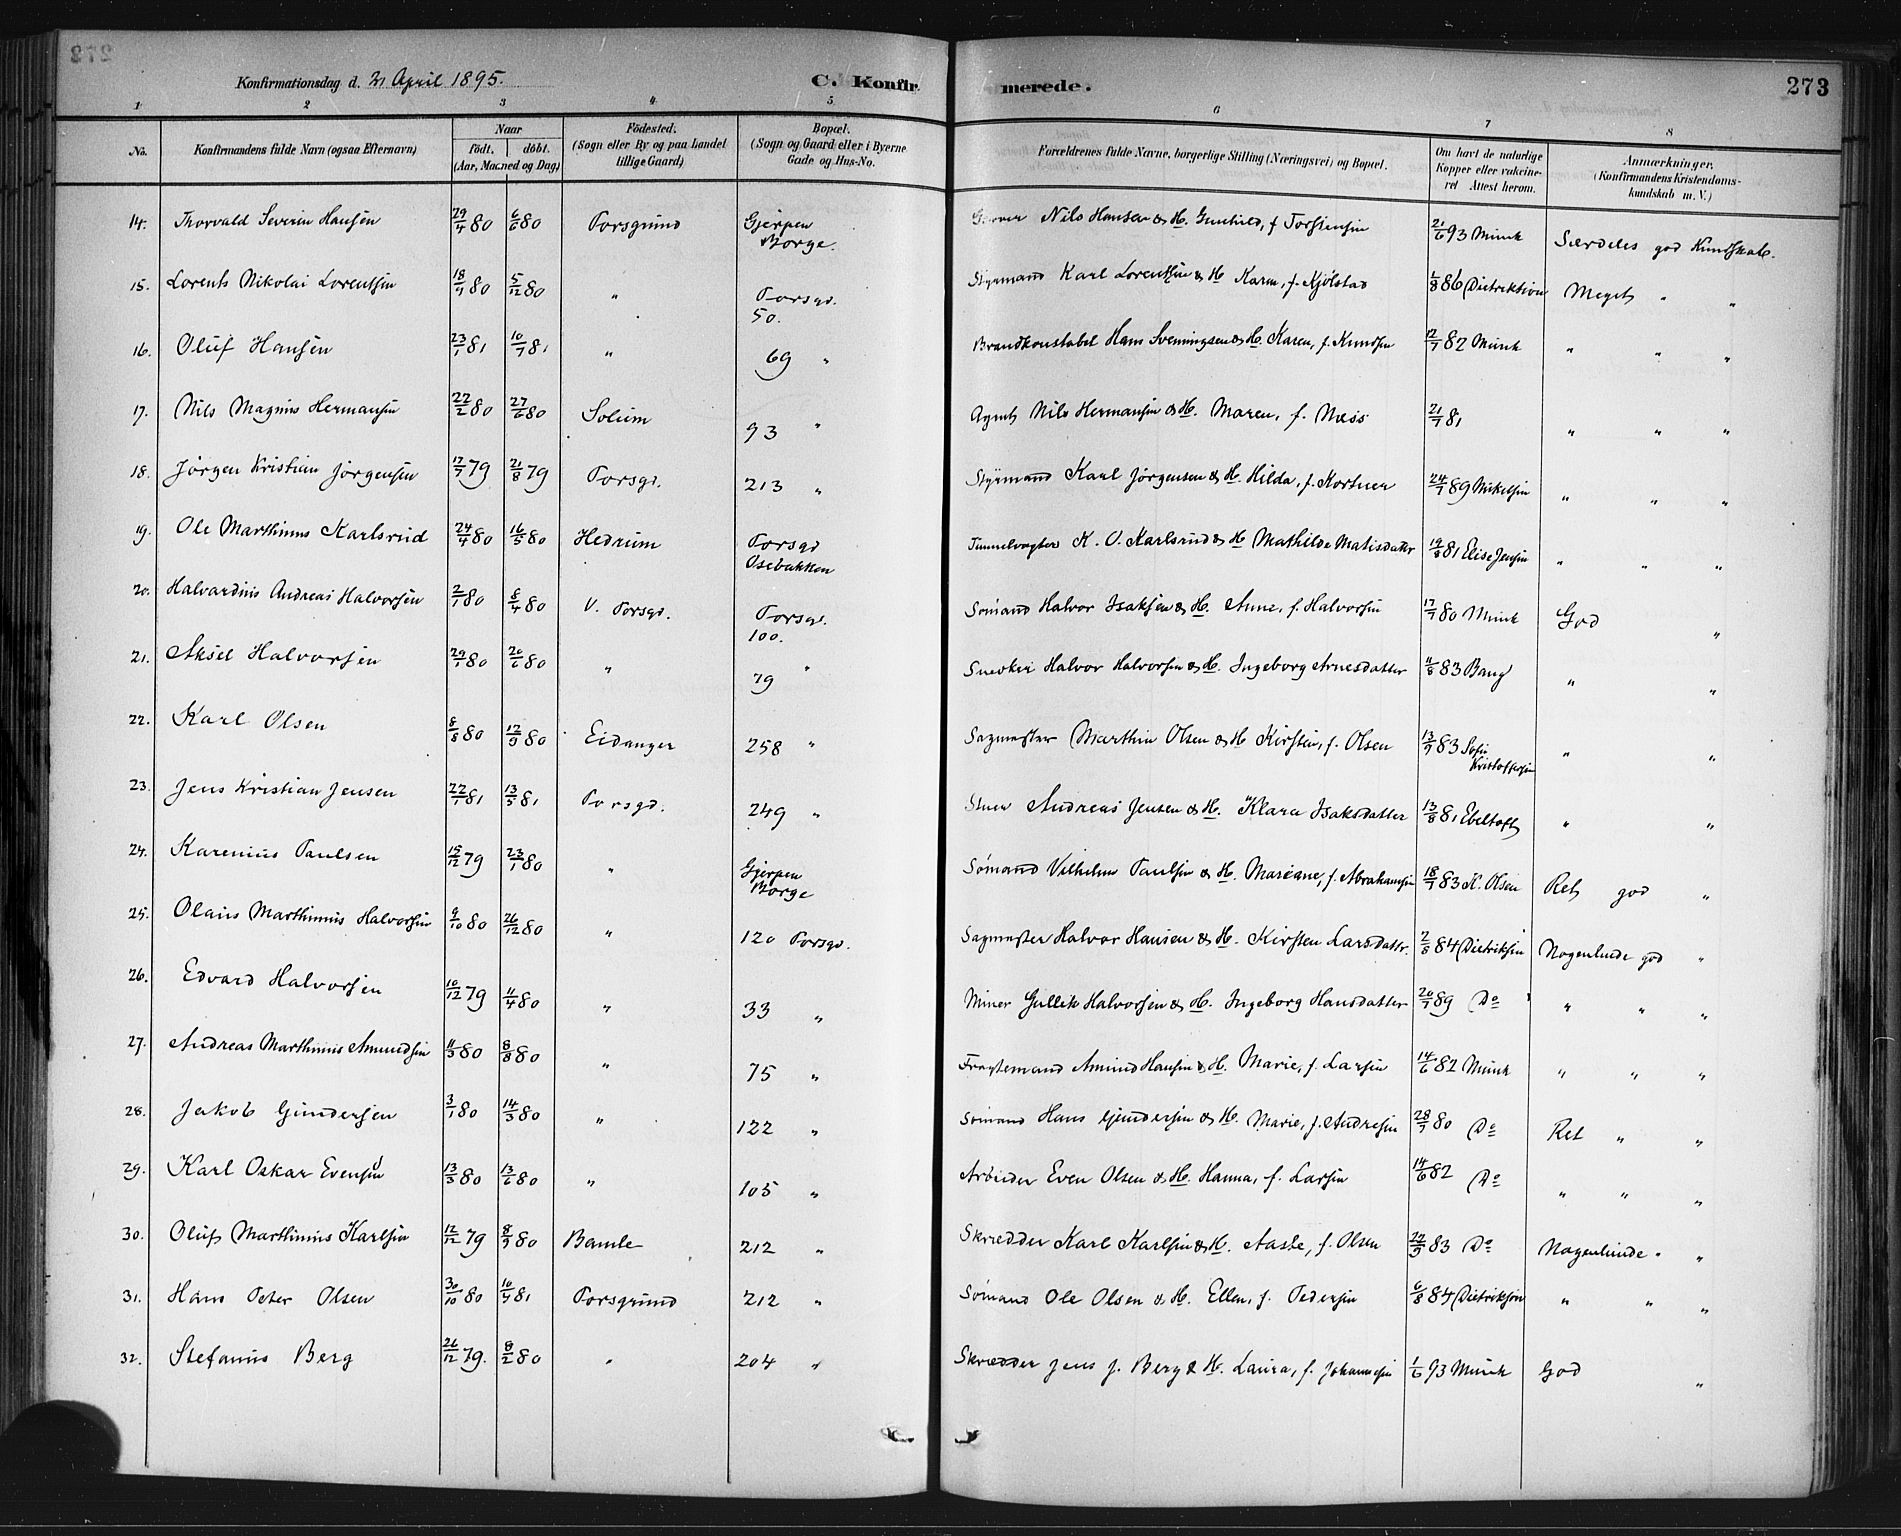 Konfirmationsdag d. 21 April 1895. C. Konfirmerede. 273
1 2 3 4 5 6 7 8
No. Konfirmandens fulde Navn (ogsaa Efternavn) Naar Født. døbt. (Aar, Maaned og Dag) Fødested. (Sogn eller By og paa Landet tillige Gaard) Bopæl. (Sogn og Gaard eller i Byerne Gade og Hus-No. Forældrenes fulde Navne, borgerlige Stilling (Næringsvei) og Bopæl. Om havt de naturlige Kopper eller vakcineret Attest herom. Anmærkninger. (Konfirmandens Kristendomskundskab m. V.)
14. Thorvald Severin Hansen 29/4 80 6/6 80 Porsgrund Gjerpen Borge. Nils Hansen & H. Gunhild, f Torstensen 21/6 93 Munk Særdeles god Kundskab.
15. Lorents Nikolai Lorentsen 18/9 80 5/12 80 " Porsgd. 50. Styrmand Karl Lorentsen & H Karen, f. Kjölstad 86 Dietrikson Meget " "
16. Oluf Hansen 23/1 81 10/7 81 " 69 " Brandkonstabel Hans Svenningsen & H. Karen, f. Knudsen 12/7 82 Munk " " "
17. Nils Magnus Hermansen 22/2 80 27/6 80 Solum 93 " Agent Nils Hermansen & H. Maren, f. Næss 21/7 81 " " "
18. Jørgen Kristian Jørgensen 17/7 79 21/8 79 Porsgd. 213 " Styrmand Karl Jørgensen & H. Hilda, f. Kortner 24/7 89 Mikelsen " " "
19. Ole Marthinus Karlsrud 24/4 80 16/5 80 Hedrum Porsgd Osebakken Tunnelvagter K. O. Karlsrud & H Mathilde Matisdatter 19/8 81 Elise Jensen " " "
20. Halvardius Andreas Halvorsen 2/1 80 8/4 80 V. Porsgd. Porsgd. 100. Sömand Halvor Isaksen & H. Anne, f. Halvorsen 17/7 80 Munk God "
21. Aksel Halvorsen 29/1 80 20/6 80 " 79 " Snedker Halvor Halvorsen & H. Ingeborg Arnesdatter 11/8 83 Bang " "
22. Karl Olsen 8/8 80 12/9 80 Eidanger 258 " Sagmester Marthin Olsen & H Kirsten, f. Olsen 13/9 83 Sofie Kristoffersen " "
23. Jens Kristian Jensen 22/1 81 13/5 81 Porsgd. 249 " Andreas Jensen & H. Klara Isaksdatter 13/8 81 Ebeltoft " "
24. Karenius Paulsen 15/12 79 23/1 80 " Gjerpen Borge Sømand Vilhelm Paulsen & H. Mariane, f. Abrahamsen 18/7 83 K. Olsen Ret god "
25. Olaus Marthinius Halvorsen 9/10 80 26/12 80 " 120 Porsgd. Sagmester Halvor Hansen & H. Kirsten Larsdatter. 2/8 84 Dietriksen Nogenlunde god "
26. Edvard Halvorsen 10/12 79 11/4 80 " 33 " Miner Gullik Halvorsen & H. Ingeborg Hansdatter 20/7 89 Do " " "
27. Andreas Marthinius Amundsen 11/5 80 8/8 80 " 75 " Fragtemand Amund Hansen & H. Marie, f. Larsen 14/6 82 Munk " " "
28. Jakob Gundersen 3/1 80 14/3 80 " 122 " Sömand Hans Gundersen & H. Marie, f. Andresen 28/7 80 Do Ret " "
29. Karl Oskar Evensen 13/3 80 13/6 80 " 105 " Arbeider Even Olsen & H. Hanna, f. Larsen 14/6 82 Do " " "
30. Oluf Marthinius Karlsen 12/12 79 8/9 80 Bamle 212 " Skrædder Karl Karlsen & H. Aasle, f. Olsen 22/9 83 Do Nogenlunde " "
31. Hans Peter Olsen 30/10 80 10/4 81 Porsgrund 212 " Sömand Ole Olsen & H. Ellen, f. Pedersen 6/8 84 Dietrikson " " "
32. Stefanus Berg 26/12 79. 8/2 80 " 204 " Skrædder Jens J. Berg & H. Laura, f. Johannesen 1/6 93 Munk God "